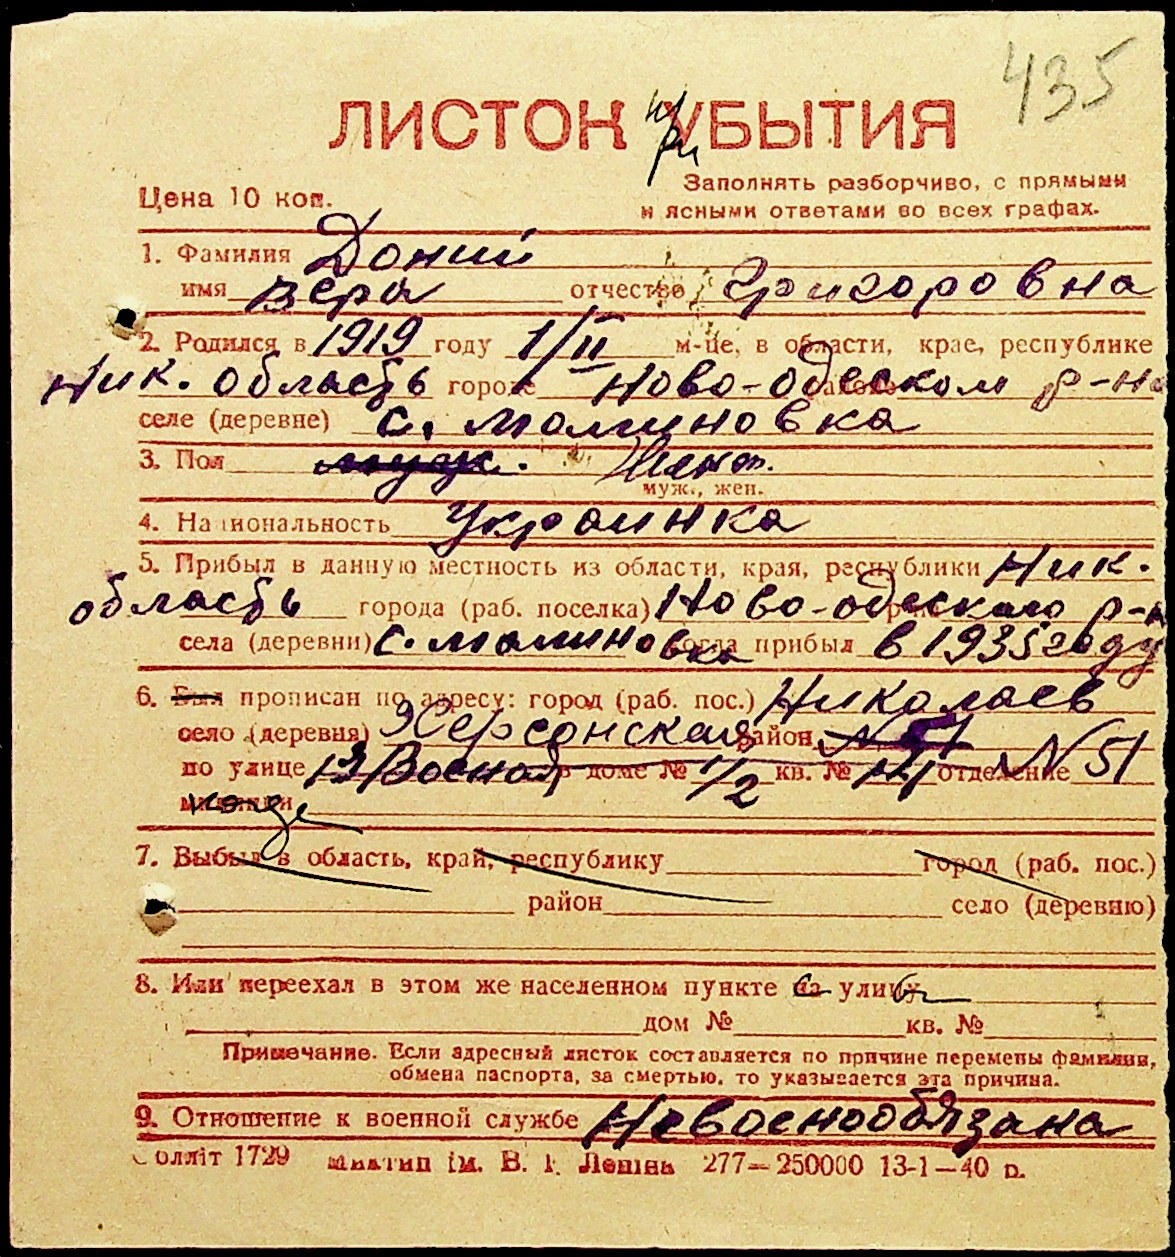 435
ЛИСТОК УБЫТИЯ
при
Цена 10 коп.
Заполнять разборчиво, с прямыми
и ясными ответами во всех графах.
1. Фамилия Доний
имя Вера отчество Григоровна
2. Родился в 1919 году 1/II м-це, в области, крае, республике
Ник. область городе Ново-одеском р-на
селе (деревне) с. Малиновка
3. Пол муж. Женск.
муж., жен.
4. Национальность Украинка
5. Прибыл в данную местность из области, края, республики Ник.
область города (раб. поселка) Ново-одеского р-н
села (деревни) с. Малиновка когда прибыл в 1935 году
6. Был прописан по адресу: город (раб. пос.) Николаев
село (деревня) Херсонская район N 51
по улице 13 Военной в доме № 1/2 кв. № отделение N 51
милиции
7. Выбыл в область, край, республику город (раб. пос.)
район село (деревню)
8. Или переехал в этом же населенном пункте на улицу
дом № кв. №
Примечание. Если адресный листок составляется по причине перемены фамилии,
обмена паспорта, за смертью, то указывается эта причина.
9. Отношение к военной службе Невоеннообязана
олліт 1729 ім. В. І. Леніна 277—250000 13-1—40 р.